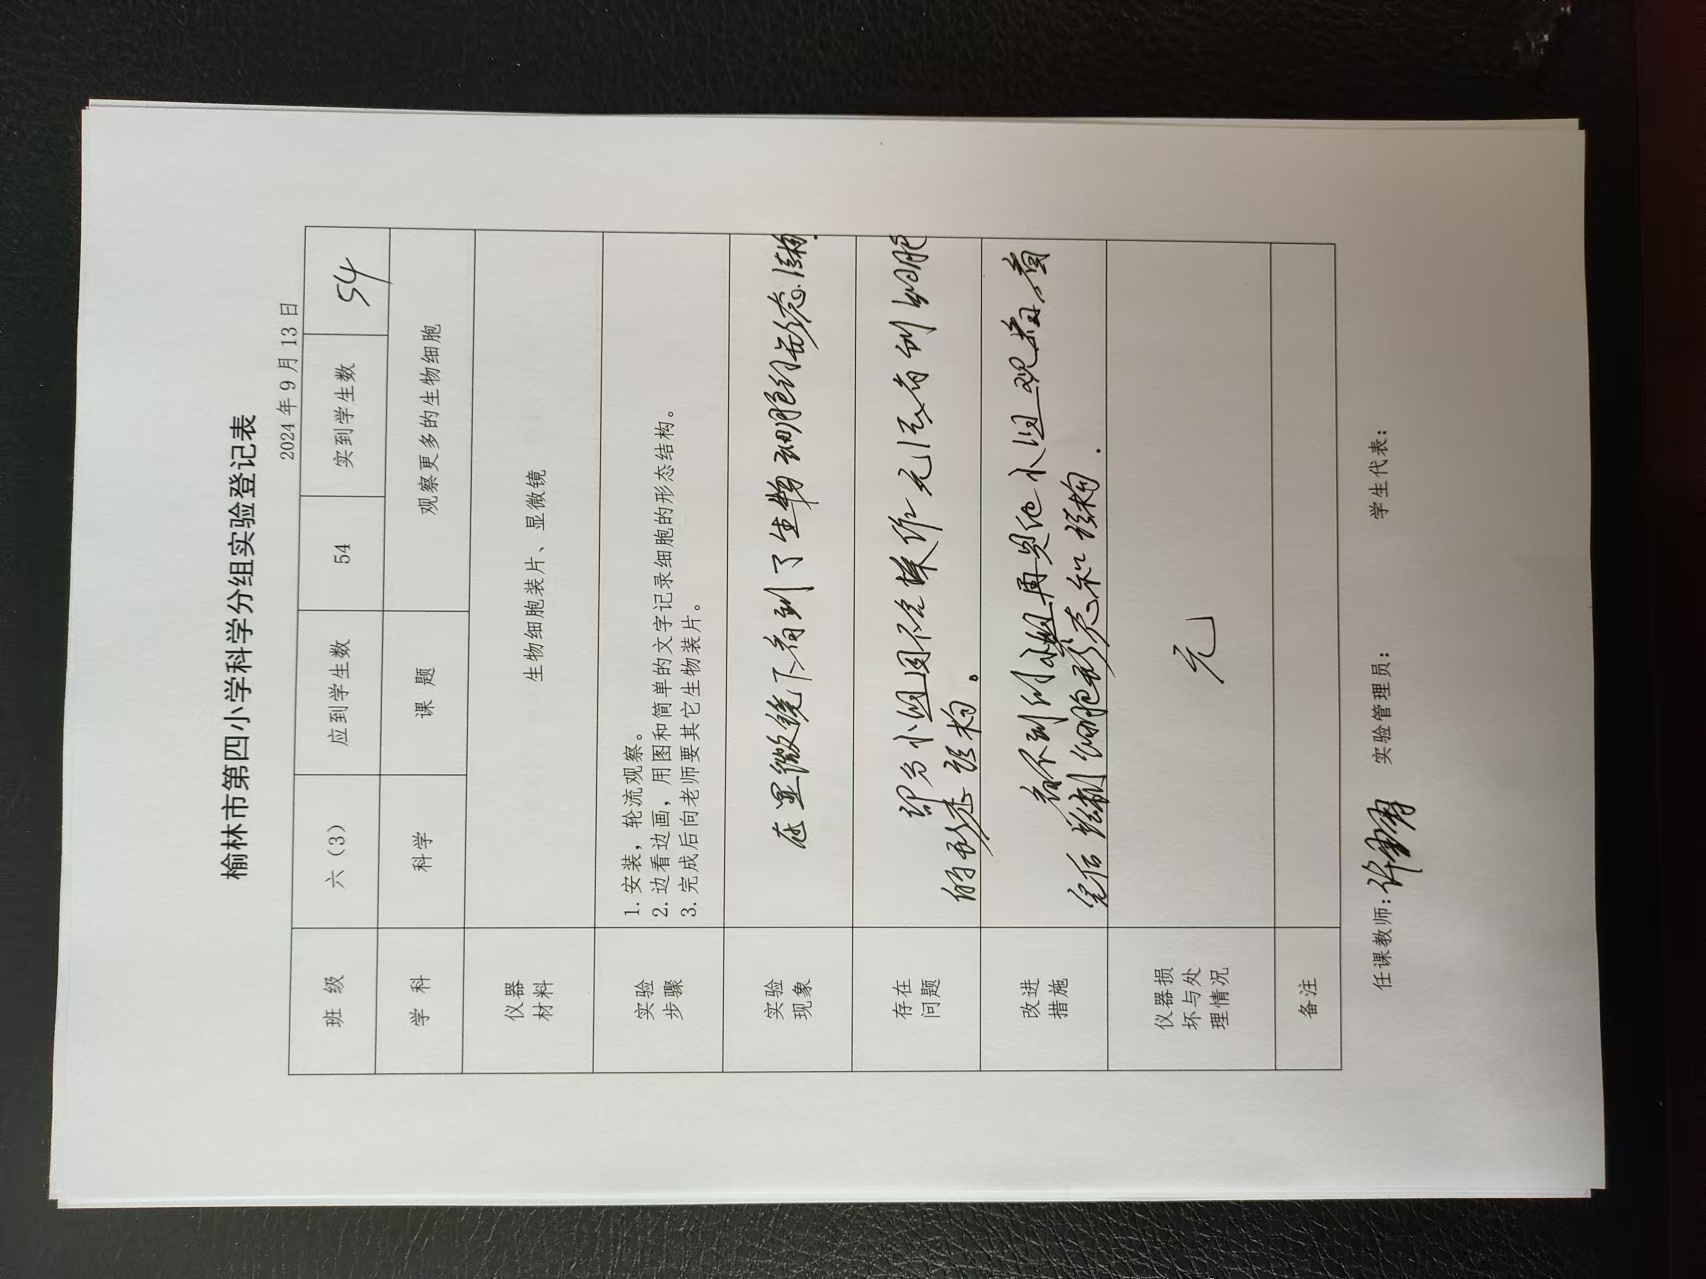 榆林市第四小学科学分组实验登记表
2024 年 9 月 13 日
班 级 六（3） 应到学生数 54 实到学生数 54
学 科 科学 课 题 观察更多的生物细胞
仪器
材料
生物细胞装片、显微镜
实验
步骤
1. 安装，轮流观察。
2. 边看边画，用图和简单的文字记录细胞的形态结构。
3. 完成后向老师要其它生物装片。
实验
现象
在显微镜下看到了生物细胞的形态.结构.
存在
问题
部分小组因不会操作无法看到细胞
的形态结构。
改进
措施
看不到的小组再观他小组观看,看
完后绘制细胞形态和结构.
仪器损
坏与处
理情况
无
备注
任课教师：许 实验管理员： 学生代表：